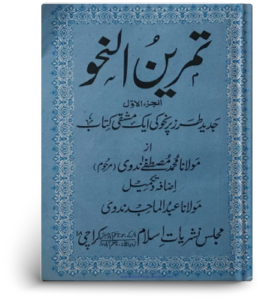 تمرین النحو
الجزء الاول
جدید طرز پر نحو کی ایک مشقی کتاب
از
مولانا محمد مصطفےٰ ندوی (مرحوم)
اضافہ و تکمیل
مولانا عبدالماجد ندوی
مجلس نشریات اسلام کراچی